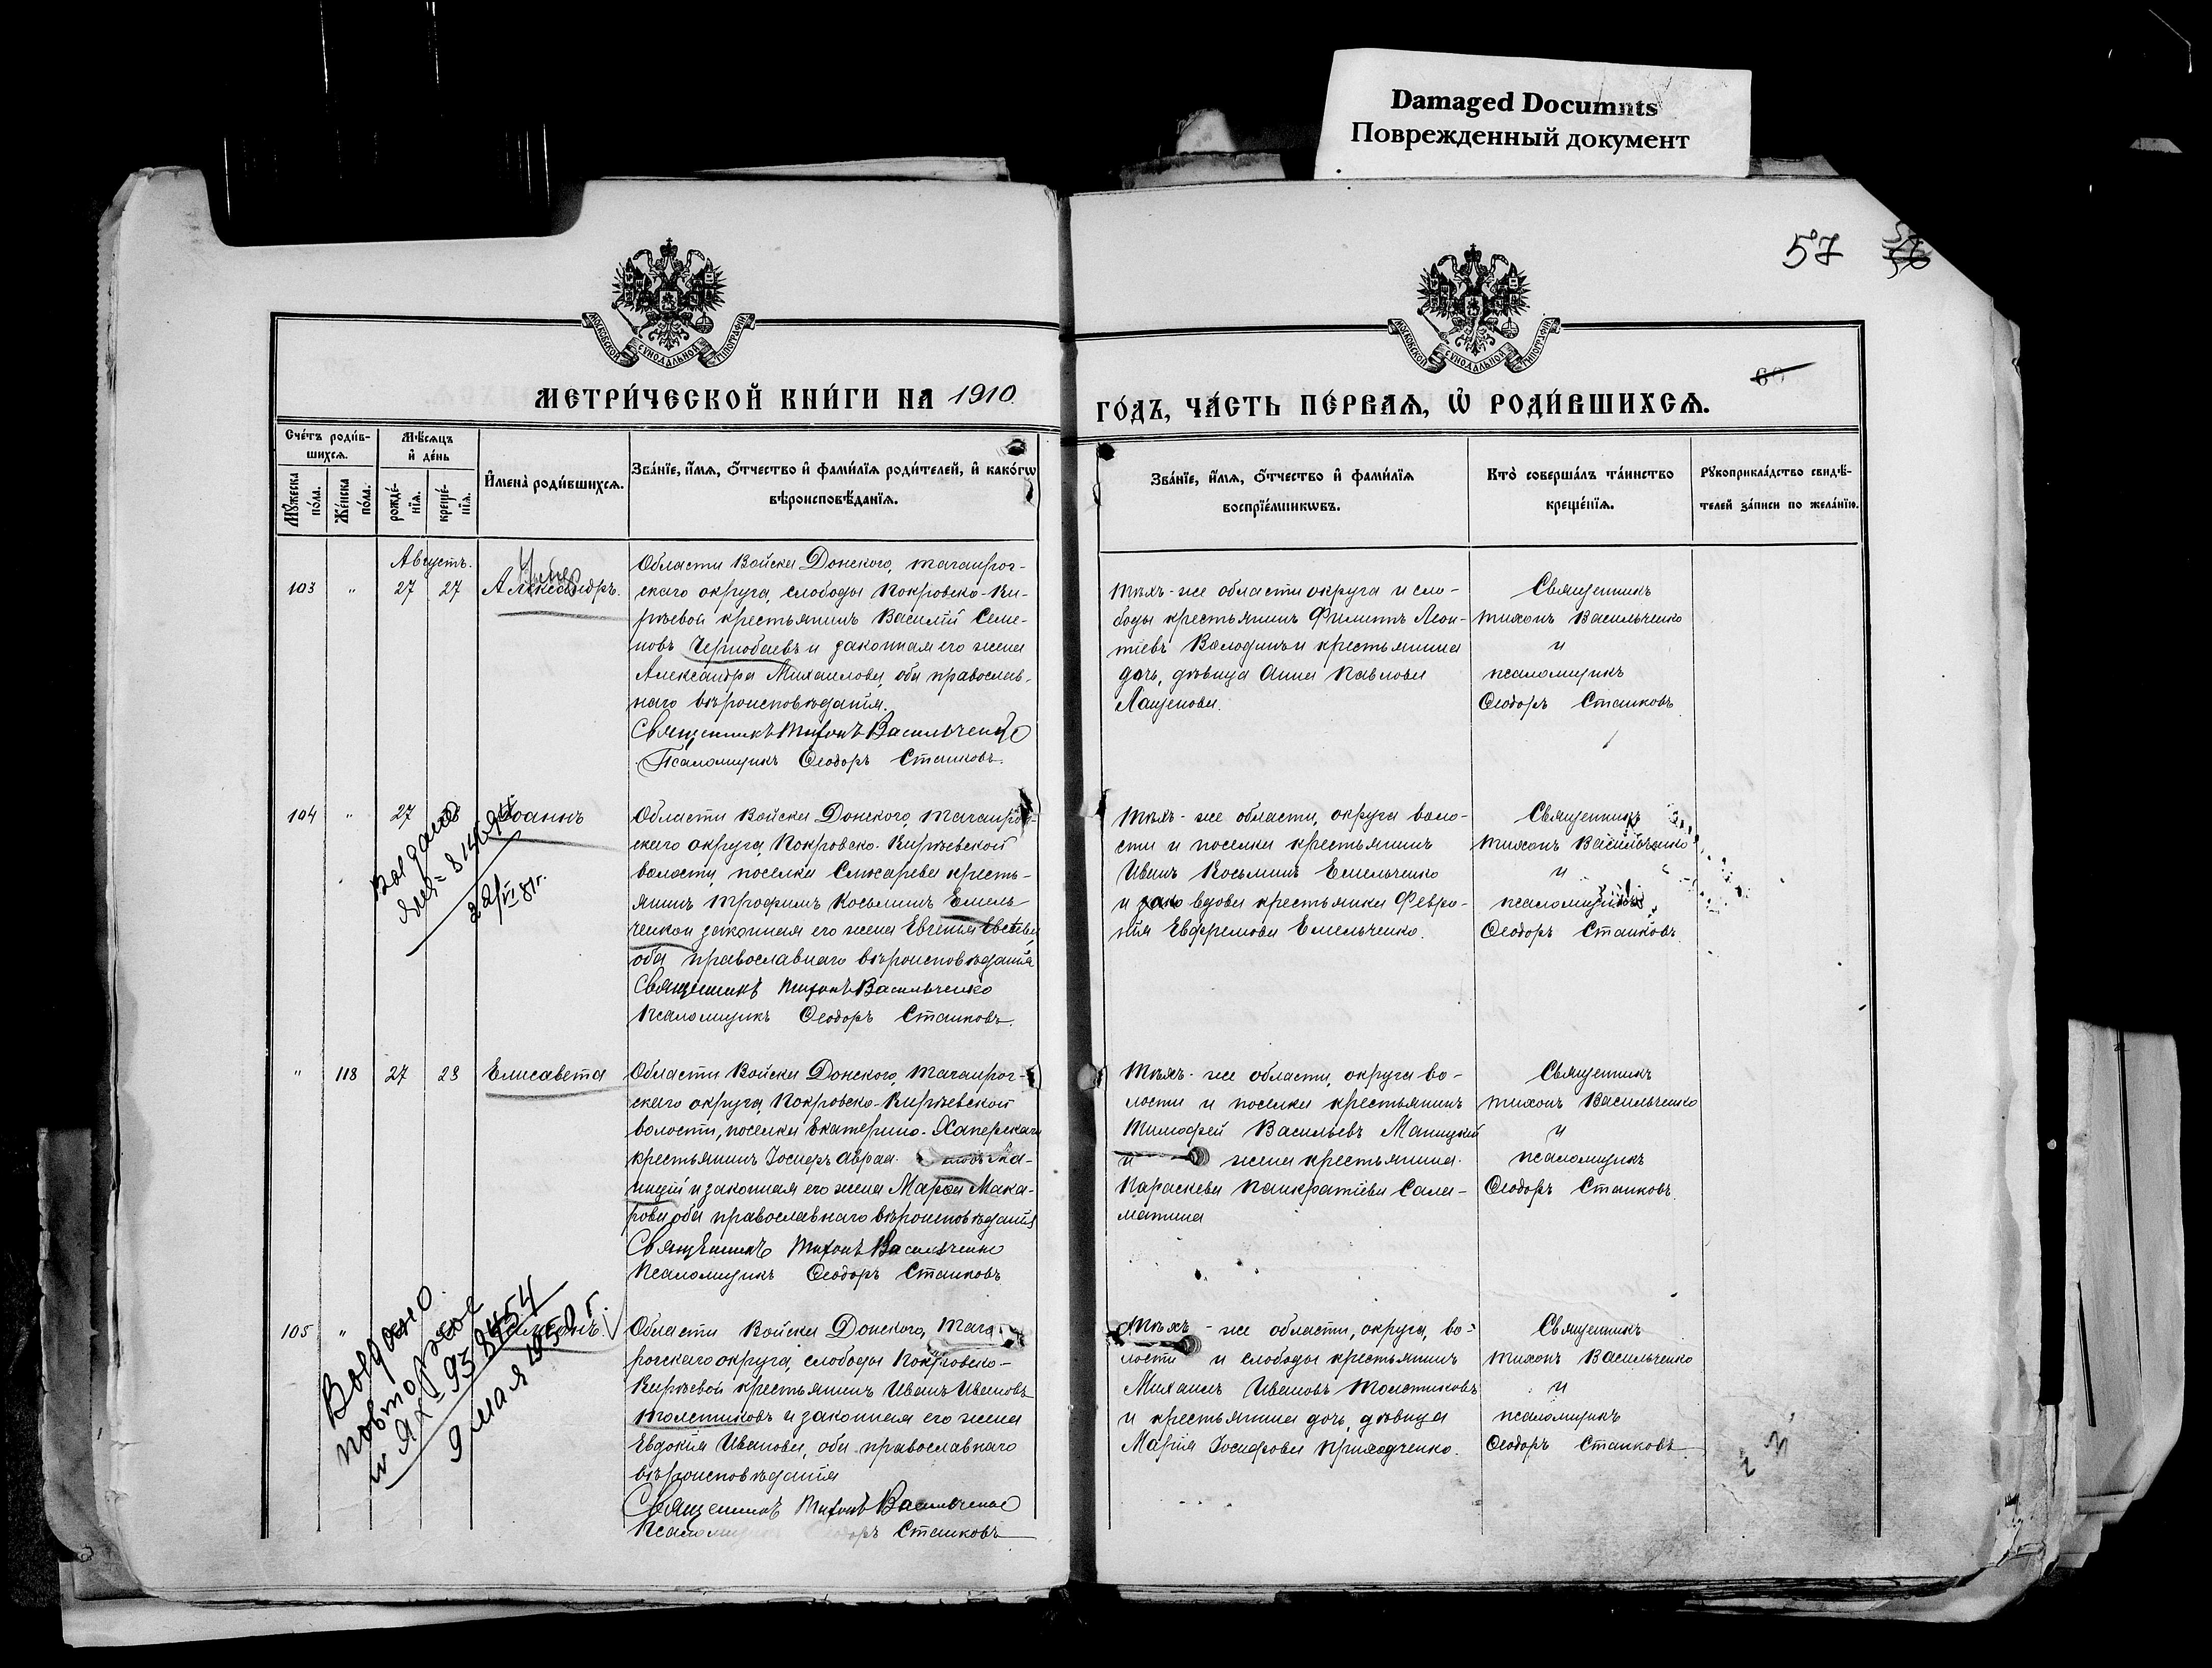 Damaged Documnts
Поврежденный документ
57
МЕТРИ́ЧЕСКОЙ КНИ́ГИ НА 1910
ГО́ДЪ, ЧА́СТЬ ПЕ́РВАѦ, Ѡ҆ РОДИ́ВШИХСѦ.
МОСКОВСКОЙ СУНОДАЛЬНОЙ ТИПОГРАФІИ
МОСКОВСКОЙ СУНОДАЛЬНОЙ ТИПОГРАФІИ
Сче́тъ роди́в-
шихсѧ.
Мѣ́сѧцъ
и҆ де́нь
Мꙋ́жеска по́ла.
Же́нска по́ла.
рожде́-
нїѧ.
креще́-
нїѧ.
И҆мена̀ роди́вшихсѧ.
Зва́нїе, и҆́мѧ, ѻ҆́тчество и҆ фами́лїѧ роди́телей, и҆ како́гѡ
вѣроисповѣ́данїѧ.
Зва́нїе, и҆́мѧ, ѻ҆́тчество и҆ фами́лїѧ
воспрїе́мникѡвъ.
Кто̀ соверша́лъ та́инство
креще́нїѧ.
Рꙋкоприкла́дство свидѣ́-
телей за́писи по жела́нїю.
Августъ.
103 " 27 27 Александръ.
Области Войска Донского, Таганрог-
скаго округа, слободы Покровско-Ки-
рѣевой крестьянинъ Василій Семе-
новъ Чернобаевъ и законная его жена
Александра Михаилова, оба православ-
наго вѣроисповѣданія.
Священникъ Тихонъ Васильченко
Псаломщикъ Ѳеодоръ Станковъ.
Тѣхъ-же области округа и сло-
боды крестьянинъ Филиппъ Леон-
тіевъ Володинъ и крестьянина
дочь, дѣвица Анна Павлова
Лащенова.
Священникъ
Тихонъ Васильченко
и
псаломщикъ
Ѳеодоръ Станковъ
104 " 27 Іоаннъ
22/VI 81г.
Области Войска Донского, Таганрог-
скаго округа, Покровско-Кирѣевской
волости, поселка Слюсарева кресть-
янинъ Трофимъ Косьминъ Емель-
ченко и законная его жена Евгенія
оба православнаго вѣроисповѣданія
Священникъ Тихонъ Васильченко
Псаломщикъ Ѳеодоръ Станковъ.
Тѣхъ-же области, округа воло-
сти и поселка крестьянинъ
Иванъ Косьминъ Емельченко
и вдова крестьянка Февро-
нія Евфремова Емельченко.
Священникъ
Тихонъ Васильченко
и
псаломщикъ
Ѳеодоръ Станковъ
" 118 27 28 Елисавета
Области Войска Донского, Таганрог-
скаго округа, Покровско-Кирѣевской
волости, поселка Екатерино-Хаперскаго
крестьянинъ Іосифъ Авраа Ма-
ницкій и законная его жена Марѳа Мака-
рова, оба православнаго вѣроисповѣданія
Священникъ Тихонъ Васильченко
Псаломщикъ Ѳеодоръ Станковъ
Тѣхъ-же области, округа во-
лости и поселка крестьянинъ
Тимофей Васильевъ Маницкій
и жена крестьянина
Параскева Панкратіева Сала-
матина
Священникъ
Тихонъ Васильченко
и
псаломщикъ
Ѳеодоръ Станковъ
Выдано
повторное
9 мая 1950 г.
105 "
Области Войска Донского, Таган-
рогскаго округа, слободы Покровско-
Кирѣевой крестьянинъ Иванъ Ивановъ
Толстиковъ и законная его жена
Евдокія Иванова, оба православнаго
вѣроисповѣданія
Священникъ Тихонъ Васильченко
Псаломщикъ Ѳеодоръ Станковъ
Тѣхъ-же области, округа, во-
лости и слободы крестьянинъ
Михаилъ Ивановъ Толстиковъ
и крестьянина дочь, дѣвица
Марія Іосифова Приходченко.
Священникъ
Тихонъ Васильченко
и
псаломщикъ
Ѳеодоръ Станковъ